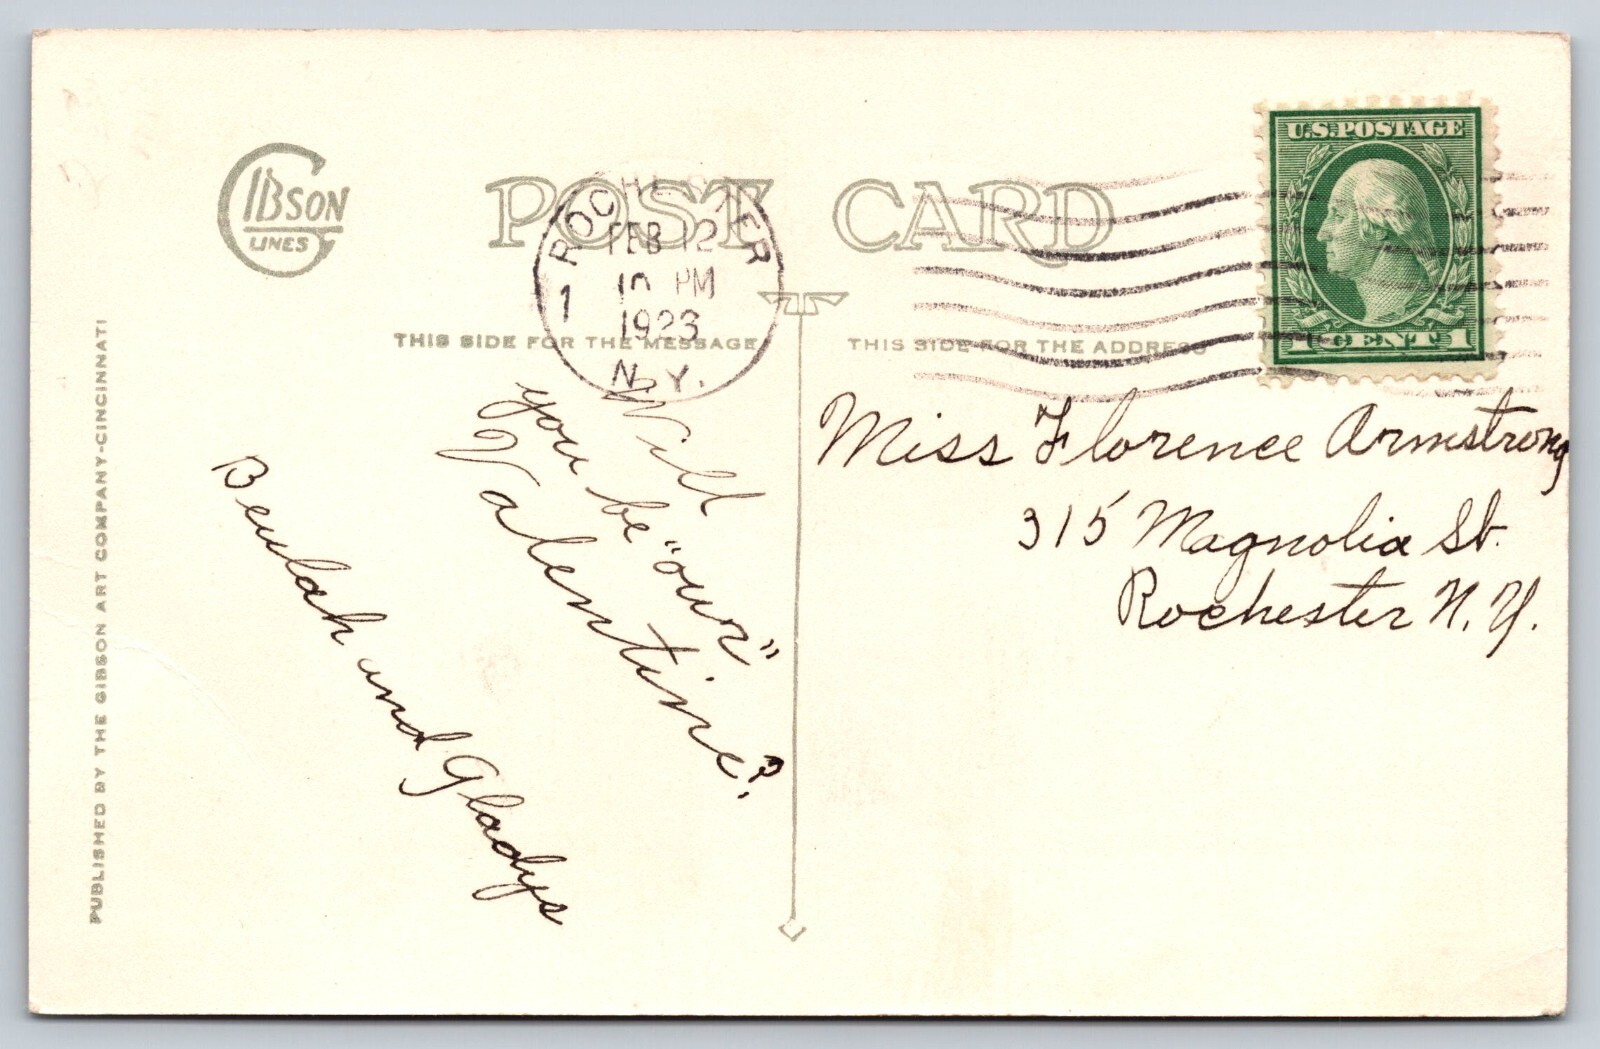 GIBSON
LINES
POST CARD
ROCHESTER
FEB 12
10 PM
1923
1
N.Y.
THIS SIDE FOR THE MESSAGE
THIS SIDE FOR THE ADDRESS
U.S.POSTAGE
1 CENT 1
PUBLISHED BY THE GIBSON ART COMPANY-CINCINNATI
Will
you be "our"
Valentine?
Beulah and Gladys
Miss Florence Armstrong
315 Magnolia St.
Rochester N.Y.